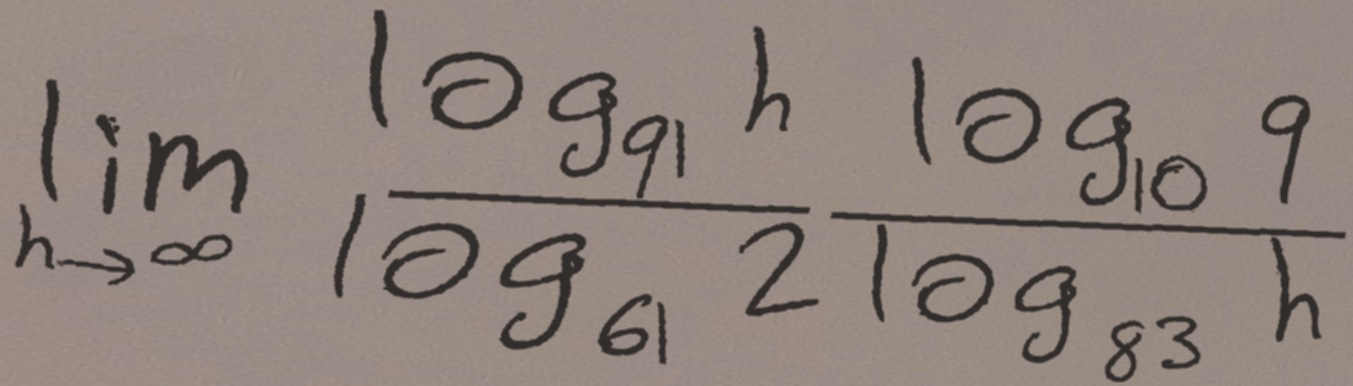 \lim_{h \to \infty} \frac{\log_{91} h}{\log_{61} 2} \frac{\log_{10} 9}{\log_{83} h}